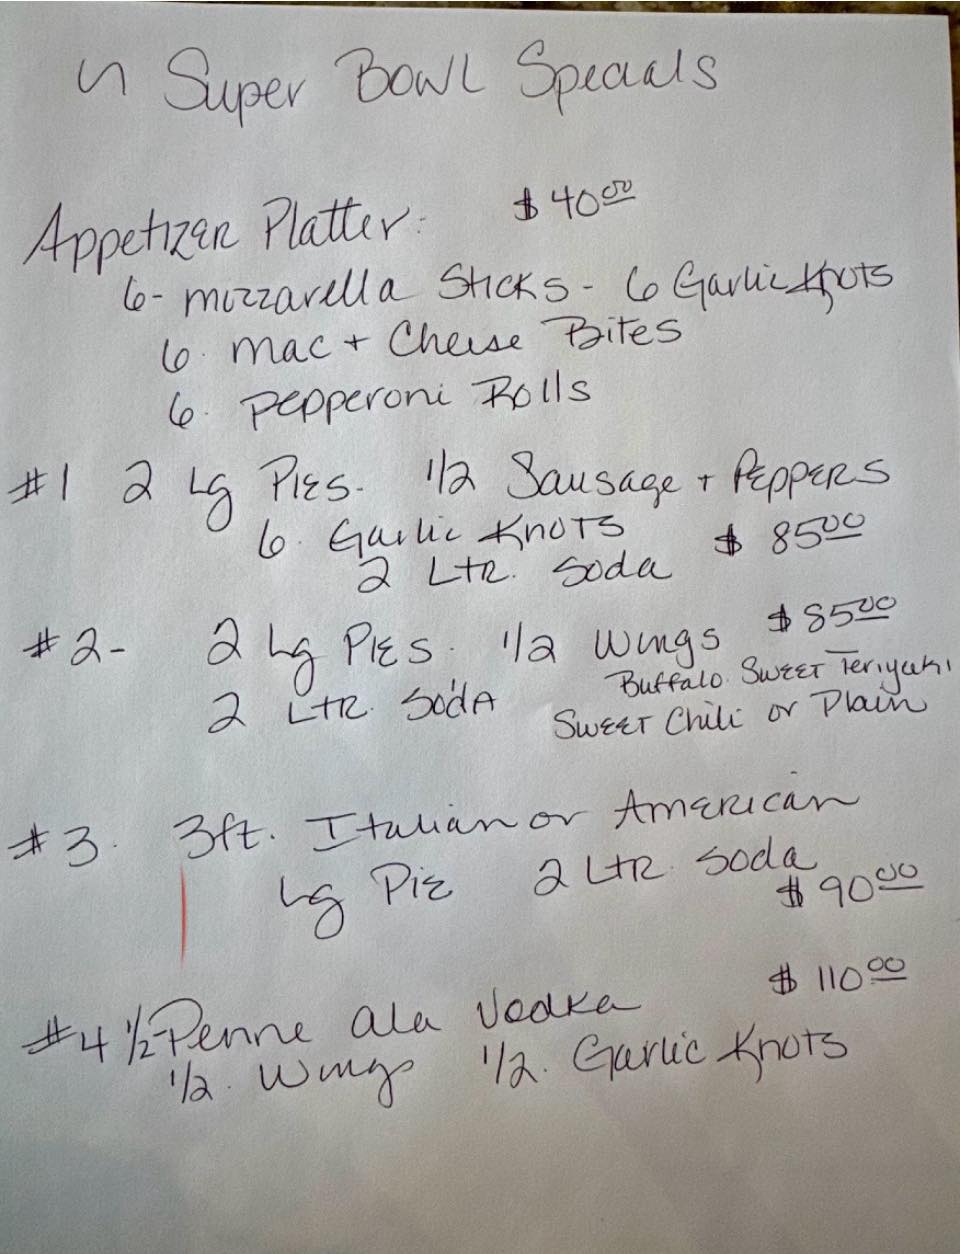 Super Bowl Specials
Appetizer Platter: $40.00
6- mozzarella Sticks - 6 Garlic Knots
6. mac + Cheese Bites
6. pepperoni Rolls
#1 2 Lg Pies. 1/2 Sausage + Peppers
6. Garlic Knots $ 85.00
2 Ltr. Soda
#2- 2 Lg Pies. 1/2 Wings $85.00
Buffalo. Sweet Teriyaki
2 Ltr. Soda Sweet Chili or Plain
#3. 3ft. Italian or American
Lg Pie 2 Ltr. Soda
$90.00
$110.00
#4 1/2-Penne ala Vodka
1/2. Wings 1/2. Garlic Knots